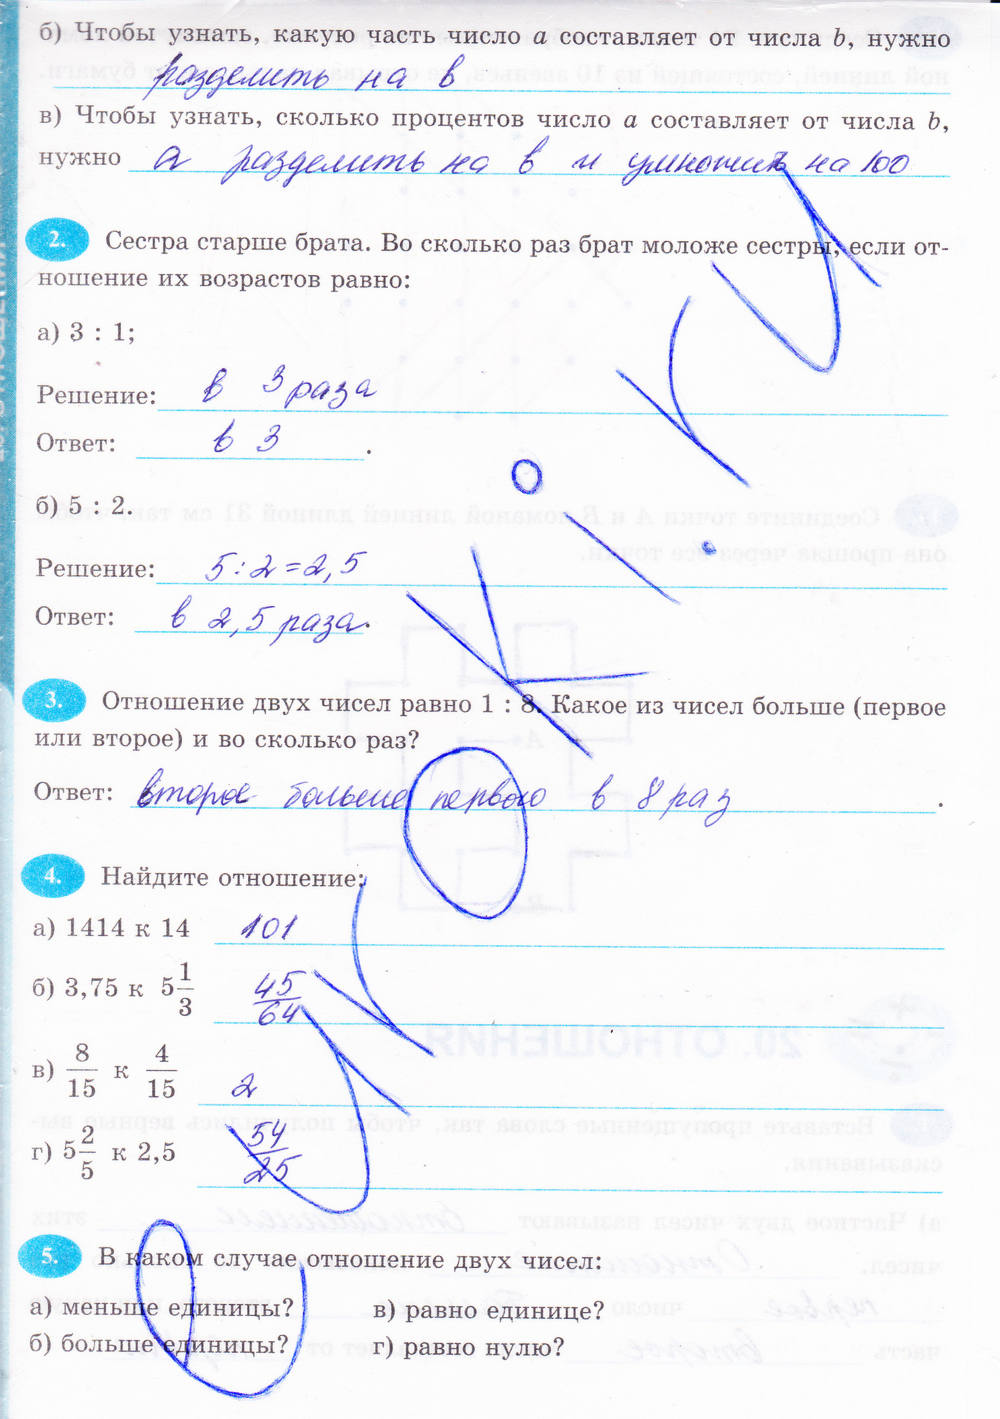 б) Чтобы узнать, какую часть число a составляет от числа b, нужно
разделить на в
в) Чтобы узнать, сколько процентов число a составляет от числа b,
нужно а разделить на в и умножить на 100
2. Сестра старше брата. Во сколько раз брат моложе сестры, если от-
ношение их возрастов равно:
а) 3 : 1;
Решение: в 3 раза
Ответ: в 3 .
б) 5 : 2.
Решение: 5:2=2,5
Ответ: в 2,5 раза.
3. Отношение двух чисел равно 1 : 8. Какое из чисел больше (первое
или второе) и во сколько раз?
Ответ: второе больше первого в 8 раз .
4. Найдите отношение:
а) 1414 к 14 101
б) 3,75 к 5 1/3 45/64
в) 8/15 к 4/15 2
г) 5 2/5 к 2,5 54/25
5. В каком случае отношение двух чисел:
а) меньше единицы? в) равно единице?
б) больше единицы? г) равно нулю?